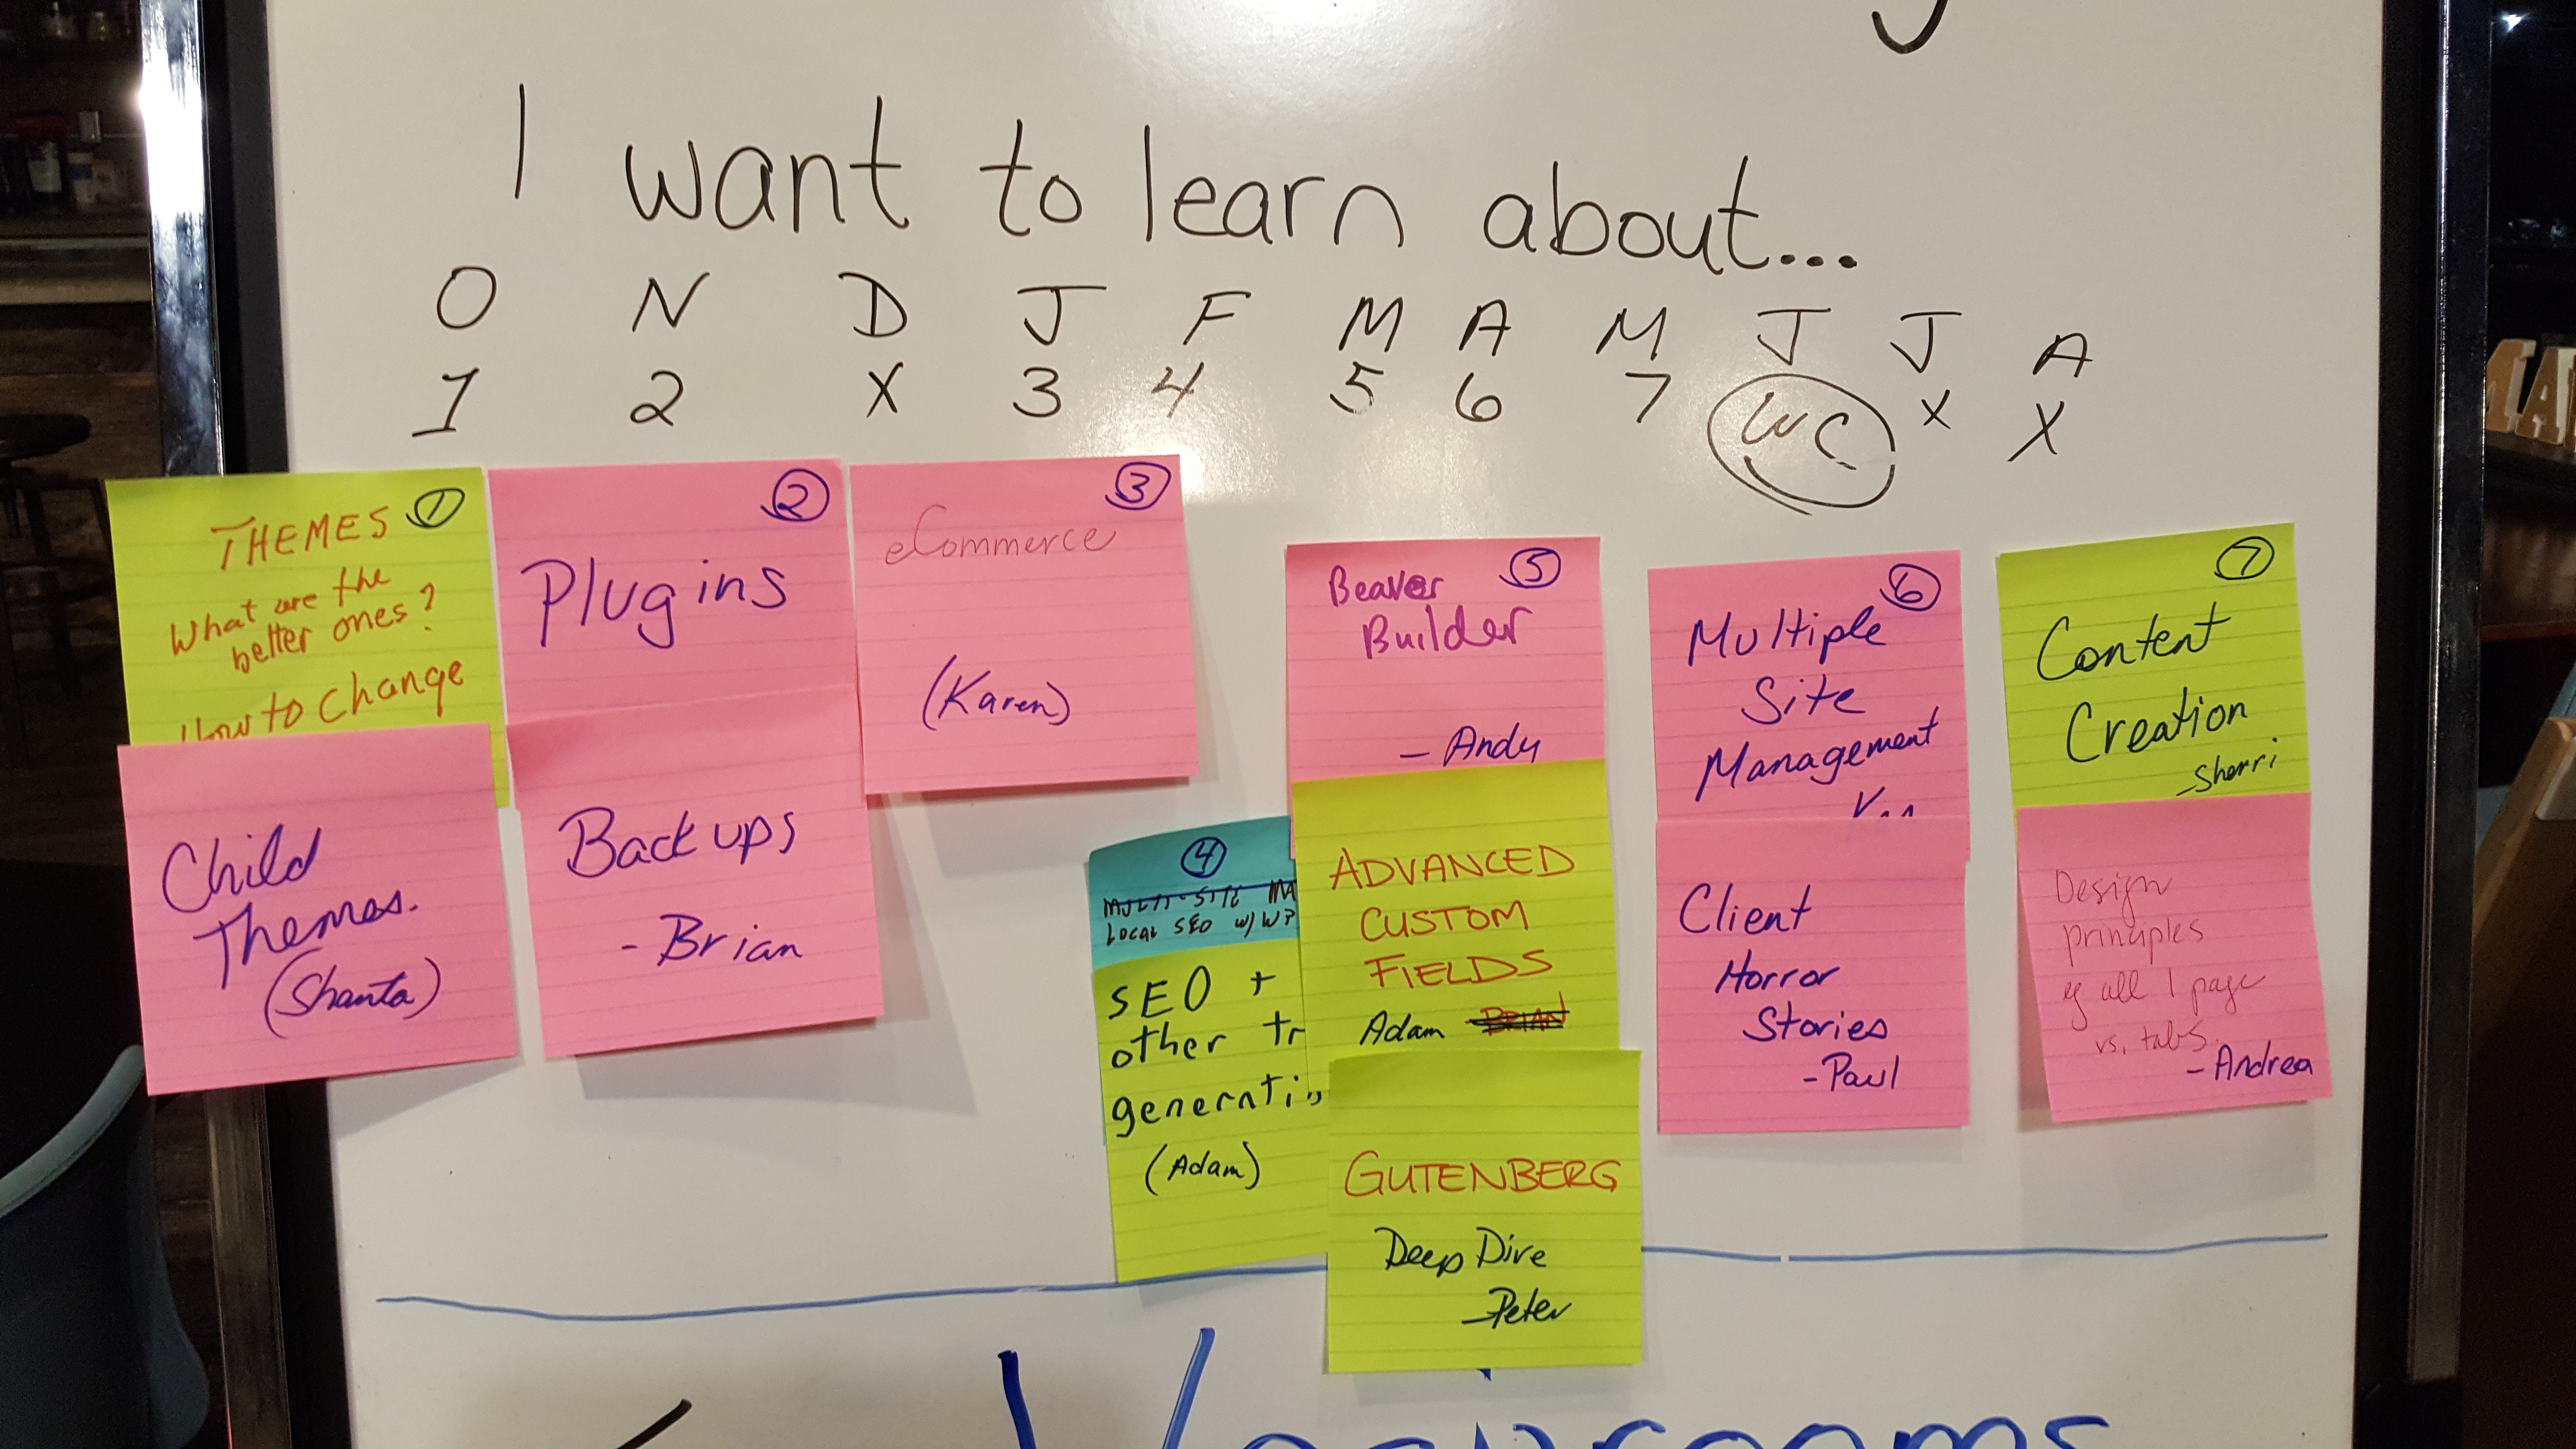 I want to learn about...
O N D J F M A M J J A
1 2 X 3 4 5 6 7 WC X X
1
THEMES
What are the
better ones?
How to change
Child
Themes.
(Shanta)
2
Plugins
Backups
- Brian
3
eCommerce
(Karen)
4
LOCAL SEO w/ WP
SEO +
other tr
generati
(Adam)
5
Beaver
Builder
- Andy
ADVANCED
CUSTOM
FIELDS
Adam BRIAN
GUTENBERG
Deep Dive
- Peter
6
Multiple
Site
Management
Client
Horror
Stories
- Paul
7
Content
Creation
- Sherri
Design
principles
eg all 1 page
vs. tabs.
- Andrea